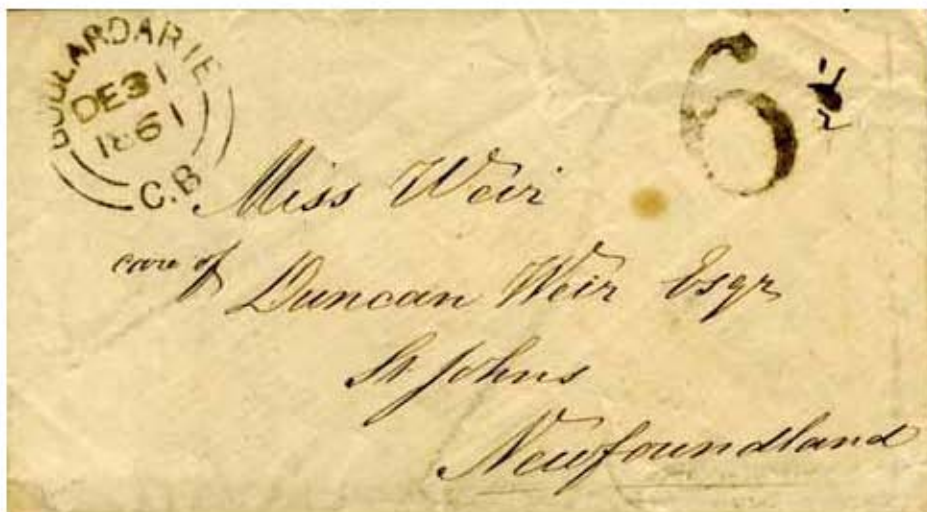 BOULARDARIE
DE 31
1861
C.B
6 1/2
Miss Weir
care of
Duncan Weir Esqr
St Johns
Newfoundland